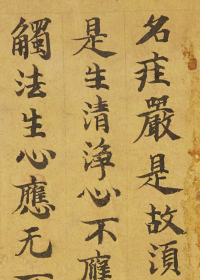 名疰嚴是故須
是生清淨心不應
觸法生心應无